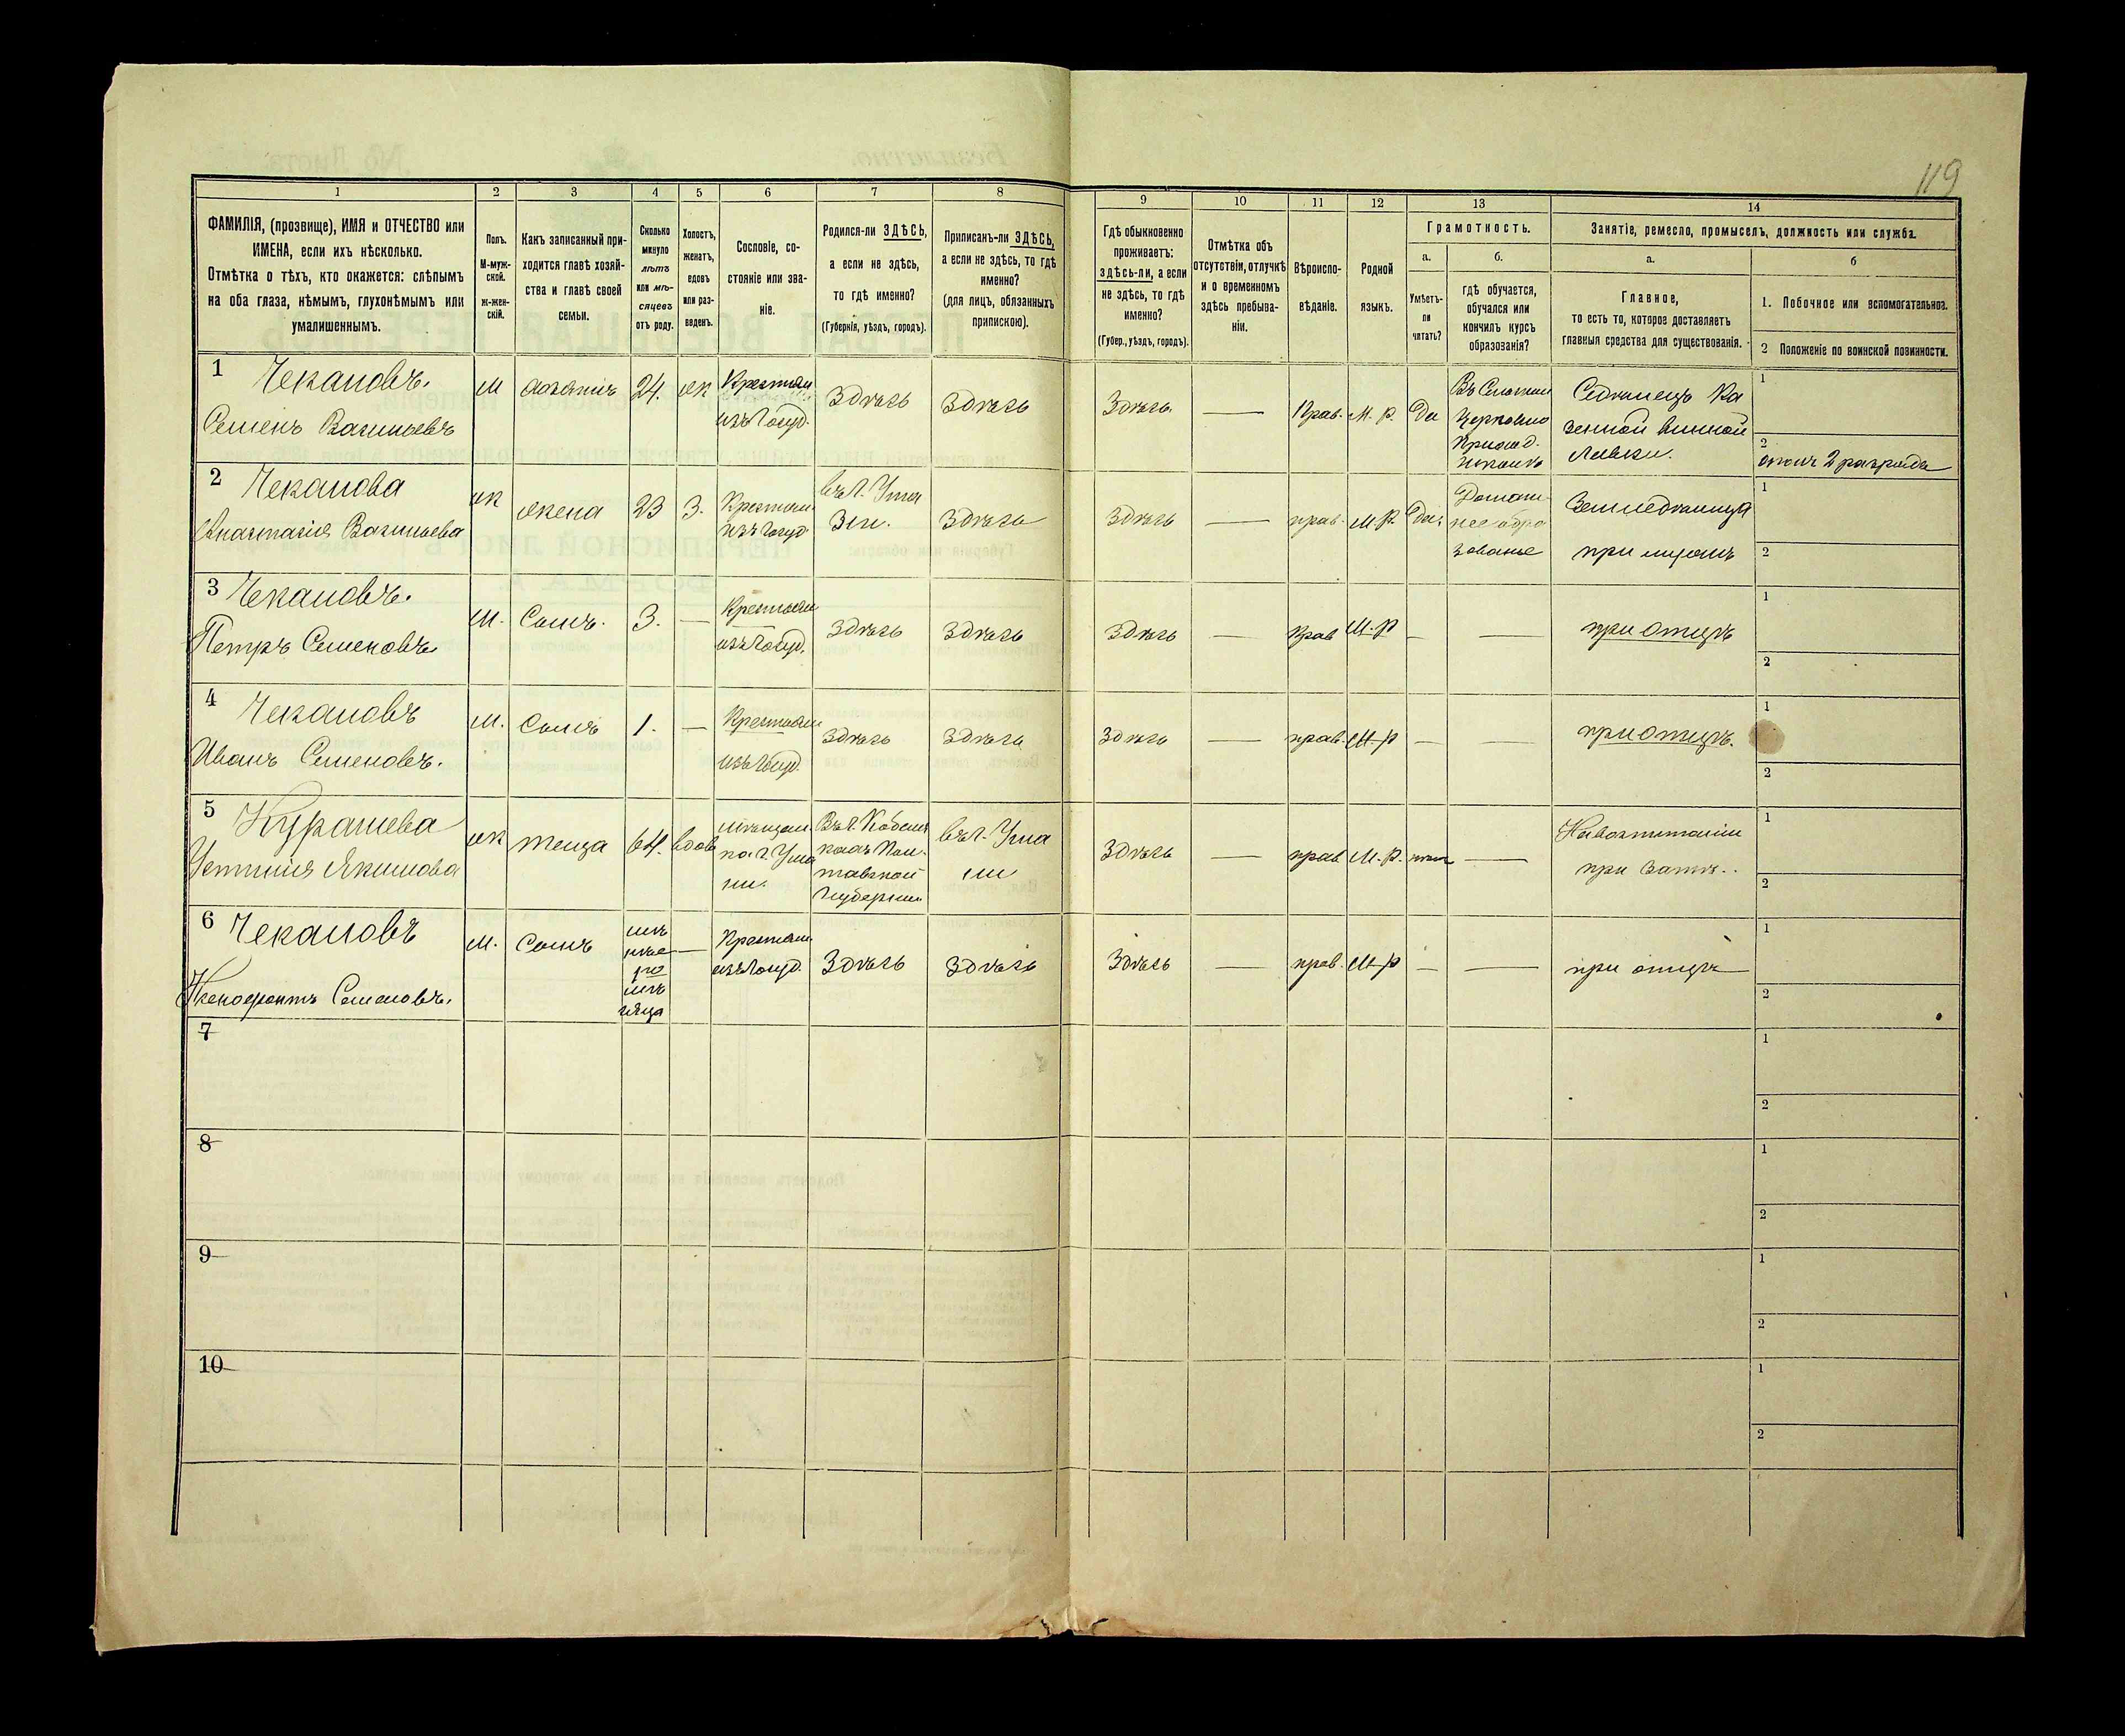 119
1
2
3
4
5
6
7
8
9
10
11
12
13
14
ФАМИЛІЯ, (прозвище), ИМЯ и ОТЧЕСТВО или
ИМЕНА, если ихъ нѣсколько.
Отмѣтка о тѣхъ, кто окажется: слѣпымъ
на оба глаза, нѣмымъ, глухонѣмымъ или
умалишеннымъ.
Полъ.
М-муж-
ской.
ж-жен-
скій.
Какъ записанный при-
ходится главѣ хозяй-
ства и главѣ своей
семьи.
Сколько
минуло
лѣтъ
или мѣ-
сяцевъ
отъ роду.
Холостъ,
женатъ,
вдовъ
или раз-
веденъ.
Сословіе, со-
стояніе или зва-
ніе.
Родился-ли ЗДѢСЬ,
а если не здѣсь,
то гдѣ именно?
(Губернія, уѣздъ, городъ).
Приписанъ-ли ЗДѢСЬ,
а если не здѣсь, то гдѣ
именно?
(для лицъ, обязанныхъ
припискою).
Гдѣ обыкновенно
проживаетъ:
здѣсь-ли, а если
не здѣсь, то гдѣ
именно?
(Губер., уѣздъ, городъ).
Отмѣтка объ
отсутствіи, отлучкѣ
и о временномъ
здѣсь пребыва-
ніи.
Вѣроиспо-
вѣданіе.
Родной
языкъ.
Грамотность.
а.
Умѣетъ-
ли
читать?
б.
гдѣ обучается,
обучался или
кончилъ курсъ
образованія?
Занятіе, ремесло, промыселъ, должность или служба.
а.
Главное,
то есть то, которое доставляетъ
главныя средства для существованія.
б
1. Побочное или вспомогательное.
2 Положеніе по воинской повинности.
1
Чекановъ.
Семенъ Васильевъ
м
хозяинъ
24.
ж
Крестьян
изъ Госуд.
Здѣсь
Здѣсь
Здѣсь.
—
Прав.
М. р.
Да
Церковно
Приход.
Сѣдѣлецъ Ка
зенной винной
Лавки.
1
2
2 разряда
2
Чеканова
Анастасія Васильева
ж
жена
23
З.
Крестьян.
изъ Госуд
въ г. Ума
Здѣсь
Здѣсь
—
прав.
М.Р.
Да.
Домаш-
нее обра
зованье
при мужѣ
1
2
3
Чекановъ.
Петръ Семеновъ
М.
Сынъ.
3.
—
Крестьян
изъ Госуд.
Здѣсь
Здѣсь
Здѣсь
—
прав
М-р
—
—
при отцѣ
1
2
4
Чекановъ
Иванъ Семеновъ.
М.
Сынъ
1.
—
Крестьян
изъ Госуд.
здѣсь
здѣсь
Здѣсь
—
прав.
М-р
—
—
при отцѣ.
1
2
5
Устинія Якимова
ж
теща
64.
вдов
мѣщан
ка г. Ума
ни.
Въ г. Кобеля
кахъ Пол-
тавской
Губерніи
въ г. Ума
ни
Здѣсь
—
прав
М. р.
—
при зятѣ.
1
2
6
Чекановъ
Ксенофонтъ Семеновъ.
М.
Сынъ
мѣ
сяца
—
Крестьян.
изъ Госуд.
Здѣсь
Здѣсь
Здѣсь
—
прав.
М-р
—
—
при отцѣ
1
2
7
1
2
8
1
2
9
1
2
10
1
2